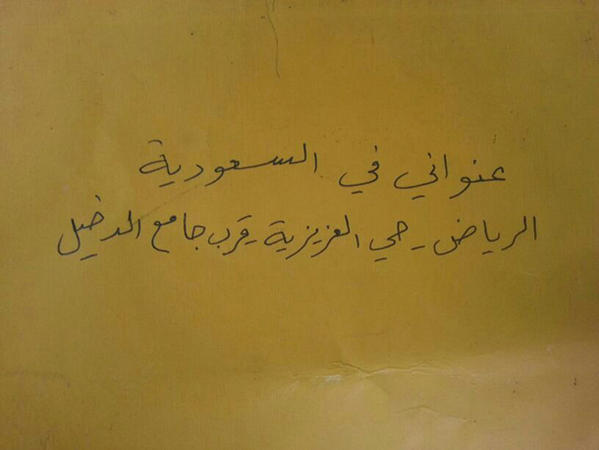 عنواني في السعودية
الرياض - حي العزيزية - قرب جامع الدخيل